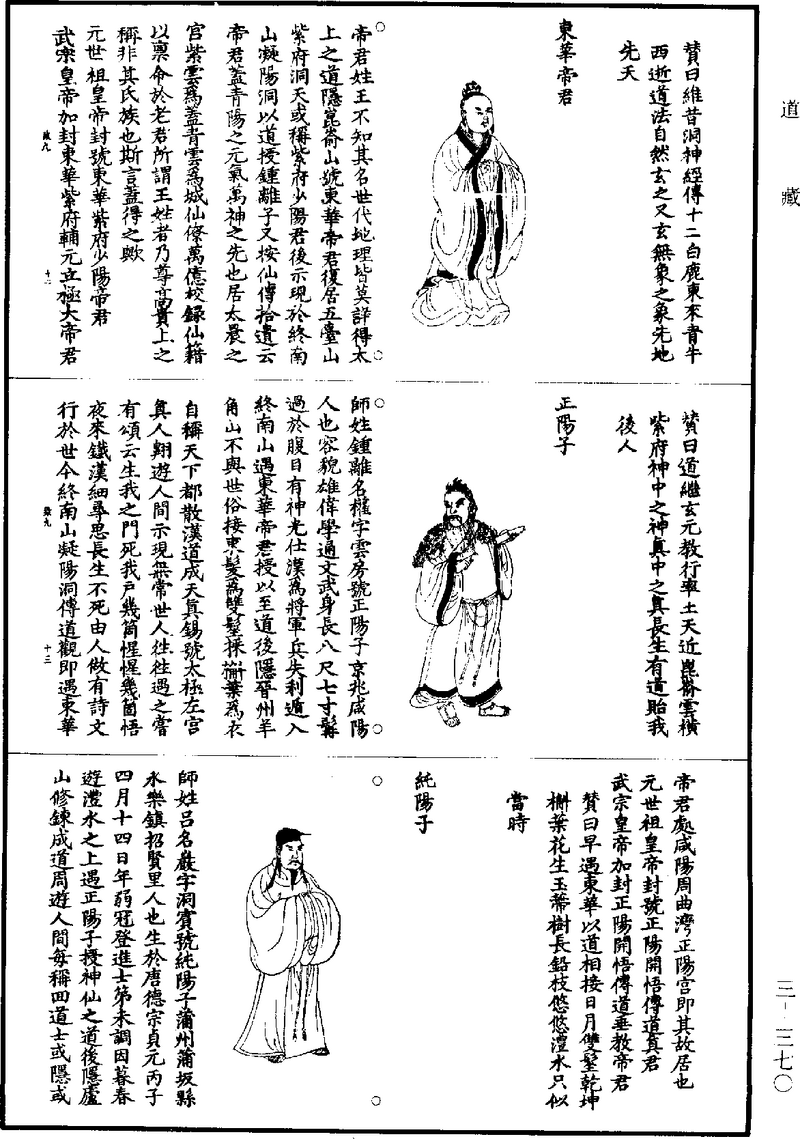 道藏
贊曰維昔洞神經傳十二白鹿東來青牛
西逝道法自然玄之又玄無象之象先地
先天
東華帝君
帝君姓王不知其名世代地理皆莫詳得太
上之道隱崑崙山號東華帝君復居五臺山
紫府洞天或稱紫府少陽君後示現於終南
山凝陽洞以道授鍾離子又按仙傳拾遺云
帝君蓋青陽之元氣萬神之先也居太晨之
宮紫雲爲蓋青雲爲城仙僚萬億校錄仙籍
以禀命於老君所謂王姓者乃尊高貴上之
稱非其氏族也斯言蓋得之歟
元世祖皇帝封號東華紫府少陽帝君
武宗皇帝加封東華紫府輔元立極大帝君
致九
十二
贊曰道繼玄元教行率土天近崑崙雲橫
紫府神中之神真中之真長生有道貽我
後人
正陽子
師姓鍾離名權字雲房號正陽子京兆咸陽
人也容貌雄偉學通文武身長八尺七寸髯
過於腹目有神光仕漢爲將軍兵失利遁入
終南山遇東華帝君授以至道後隱晉州羊
角山不與世俗接束髮爲雙髻採槲葉爲衣
自稱天下都散漢道成天真錫號太極左宮
真人翱遊人間示現無常世人往往遇之嘗
有頌云生我之門死我戶幾箇惺惺幾箇悟
夜來鐵漢細尋思長生不死由人做有詩文
行於世今終南山凝陽洞傳道觀即遇東華
致九
十三
帝君處咸陽周曲灣正陽宮即其故居也
元世祖皇帝封號正陽開悟傳道真君
武宗皇帝加封正陽開悟傳道垂教帝君
贊曰早遇東華以道相接日月雙髻乾坤
槲葉花生玉蔕樹長鉛枝悠悠澧水只似
當時
純陽子
師姓呂名巖字洞賓號純陽子蒲州蒲坂縣
永樂鎮招賢里人也生於唐德宗貞元丙子
四月十四日年弱冠登進士第未調因暮春
遊澧水之上遇正陽子授神仙之道後隱廬
山修鍊成道周遊人間每稱回道士或隱或
三-三七〇